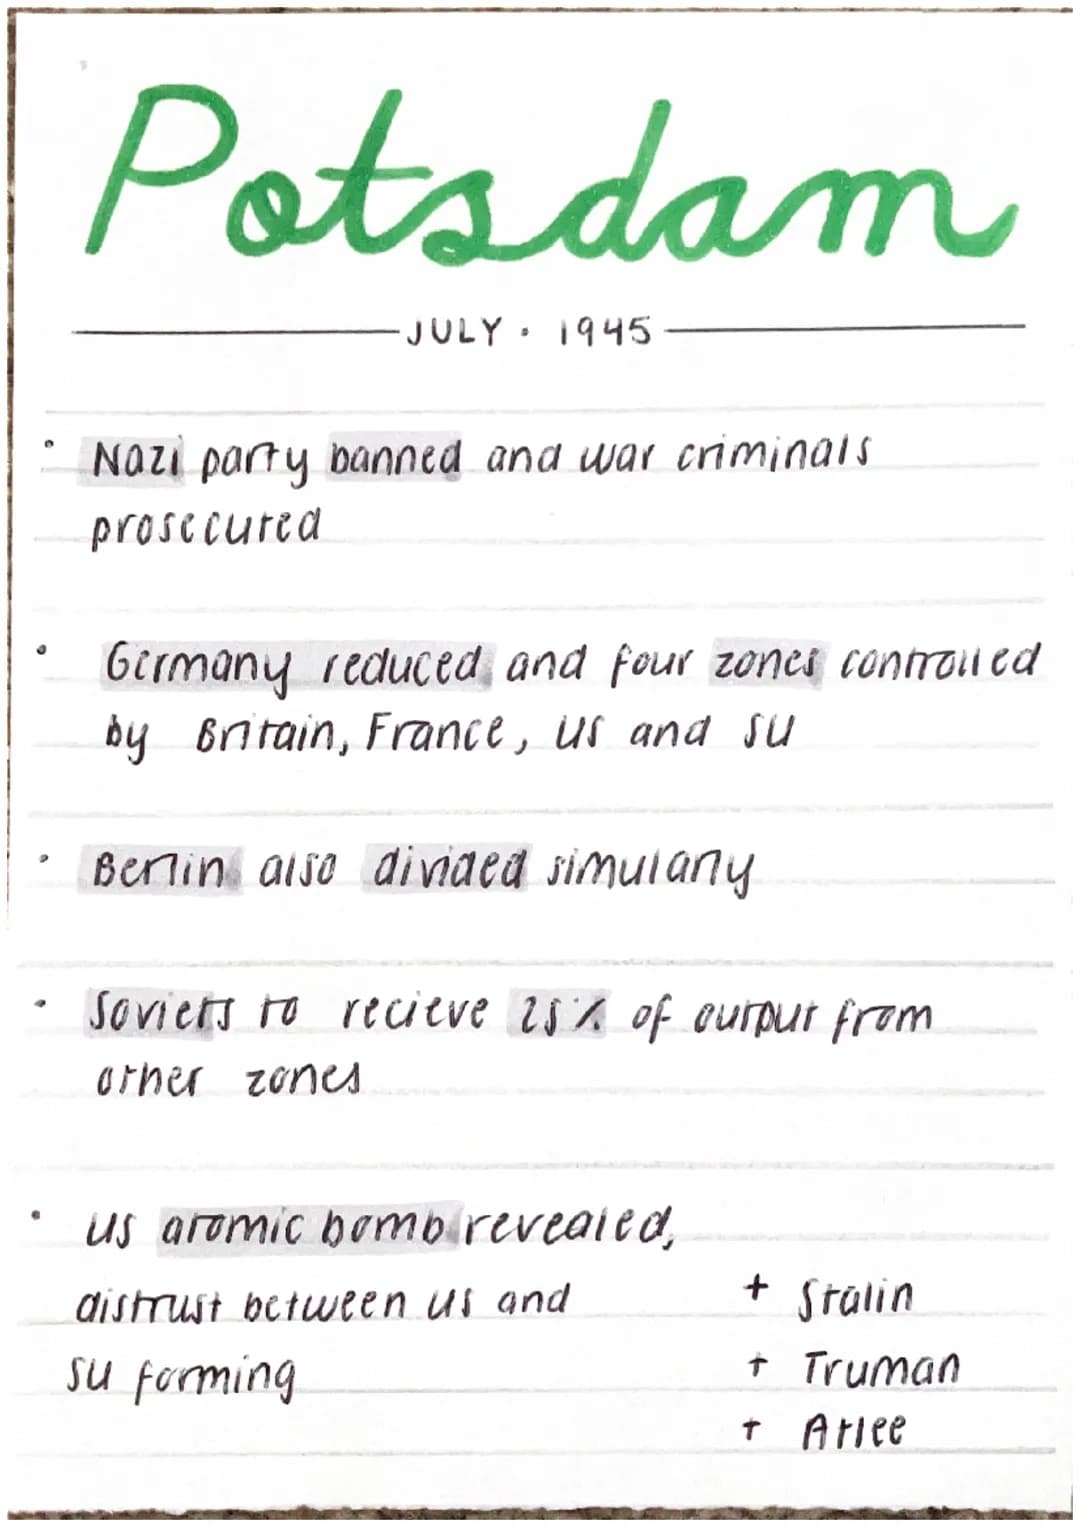 Potsdam
JULY • 1945
• Nazi party banned and war criminals
prosecuted
• Germany reduced and four zones controlled
by Britain, France, US and SU
• Berlin also divided simularly
• Soviets to recieve 25% of output from
other zones
• US atomic bomb revealed,
distrust between US and
SU forming
+ Stalin
+ Truman
+ Atlee